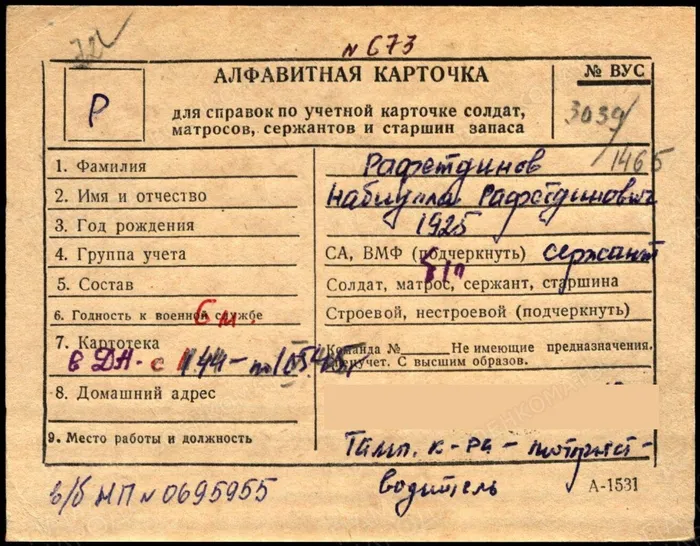 N 673
АЛФАВИТНАЯ КАРТОЧКА
№ ВУС
Р
для справок по учетной карточке солдат,
матросов, сержантов и старшин запаса
3039/1465
1. Фамилия Рафетдинов
2. Имя и отчество Набиулла Рафетдинович
3. Год рождения 1925
4. Группа учета СА, ВМФ (подчеркнуть) сержант
5. Состав б/п Солдат, матрос, сержант, старшина
6. Годность к военной службе Строевой, нестроевой (подчеркнуть)
7. Картотека Команда № Не имеющие предназначения.
в ДА - с 44 - по Спецучет. С высшим образов.
8. Домашний адрес
9. Место работы и должность
водитель
в/б НП N 0695955
А-1531